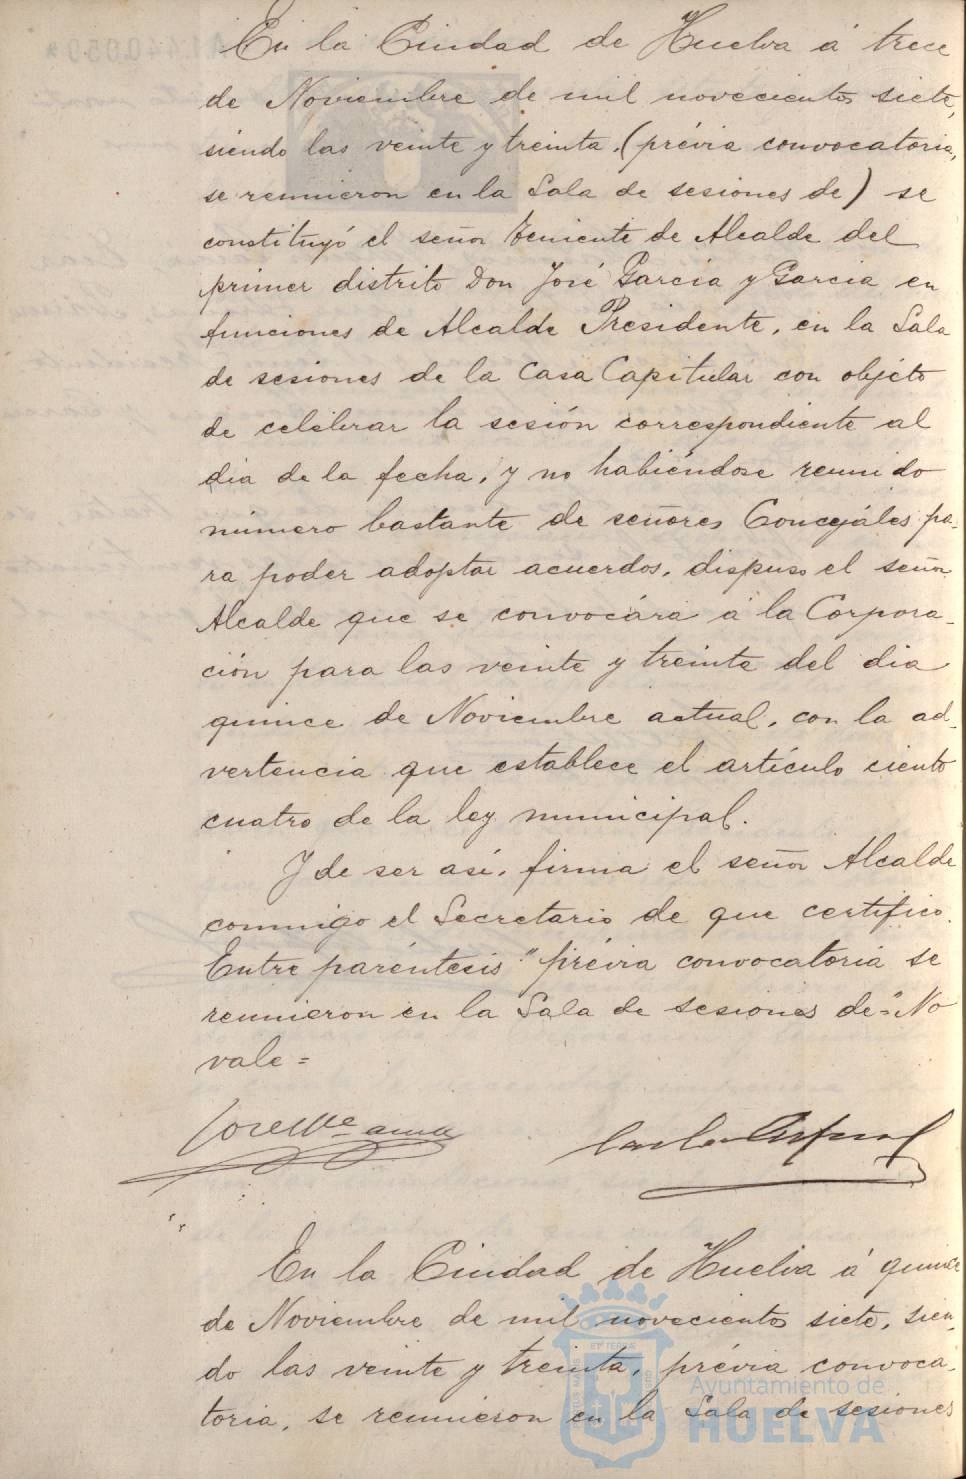 En la Ciudad de Huelva á trece
de Noviembre de mil novecientos siete,
siéndo las veinte y treinta, (prévia convocatoria,
se reunieron en la Sala de sesiones de) se
constituyó el señor Teniente de Alcalde del
primer distrito Don José Garcia y Garcia en
funciones de Alcalde Presidente, en la Sala
de sesiones de la Casa Capitular con objéto
de celébrar la sesión correspondiente al
dia de la fecha, y no habiéndose reunido
número bastante de señores Concejáles pa-
ra poder adoptar acuerdos, dispuso el señor
Alcalde que se convocára á la Corpora-
ción para las veinte y treinta del dia
quince de Noviembre actual, con la ad-
vertencia que establece el artículo ciento
cuatro de la ley municipal.
Y de ser así, firma el señor Alcalde
conmigo el Secretario de que certifico.
Entre paréntesis "prévia convocatoria se
reunieron en la Sala de sesiones de" No
vale=
En la Ciudad de Huelva á quince
de Noviembre de mil novecientos siete, sien-
do las veinte y treinta, prévia convoca-
toria, se reunieron en la Sala de sesiones
Ayuntamiento de
HUELVA